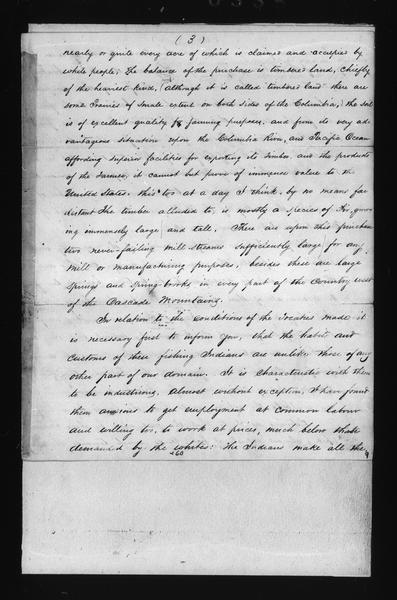 (3)
nearly or quite every acre of which is claimed and occupied by
white people; The balance of the purchase is timbered land, chiefly
of the heaviest kind, although it is called timbered land there are
some Prairies of small extent on both sides of the Columbia; the soil
is of excellent quality for farming purposes, and from its very ad-
vantageous situation upon the Columbia River, and Pacific Ocean
affording superior facilities for exporting its timber and the products
of the farmer, it cannot but prove of immense value to the
United States. this too at a day I think, by no means far
distant The timber alluded to, is mostly a species of Fir, grow-
ing immensely large and tall. There are upon this purchase
two never-failing mill-streams sufficiently large for any
Mill or manufacturing purposes, besides these are large
springs and spring-brooks in every part of the country west
of the Cascade Mountains.
In relation to the conditions of the treaties made it
is necessary first to inform you, that the habits and
customs of these fishing Indians are unlike those of any
other part of our domain. It is characteristic with them
to be industrious, almost without exception, I have found
them anxious to get employment at common labour
and willing too, to work at prices, much below that
demanded by the whites: The Indians make all the